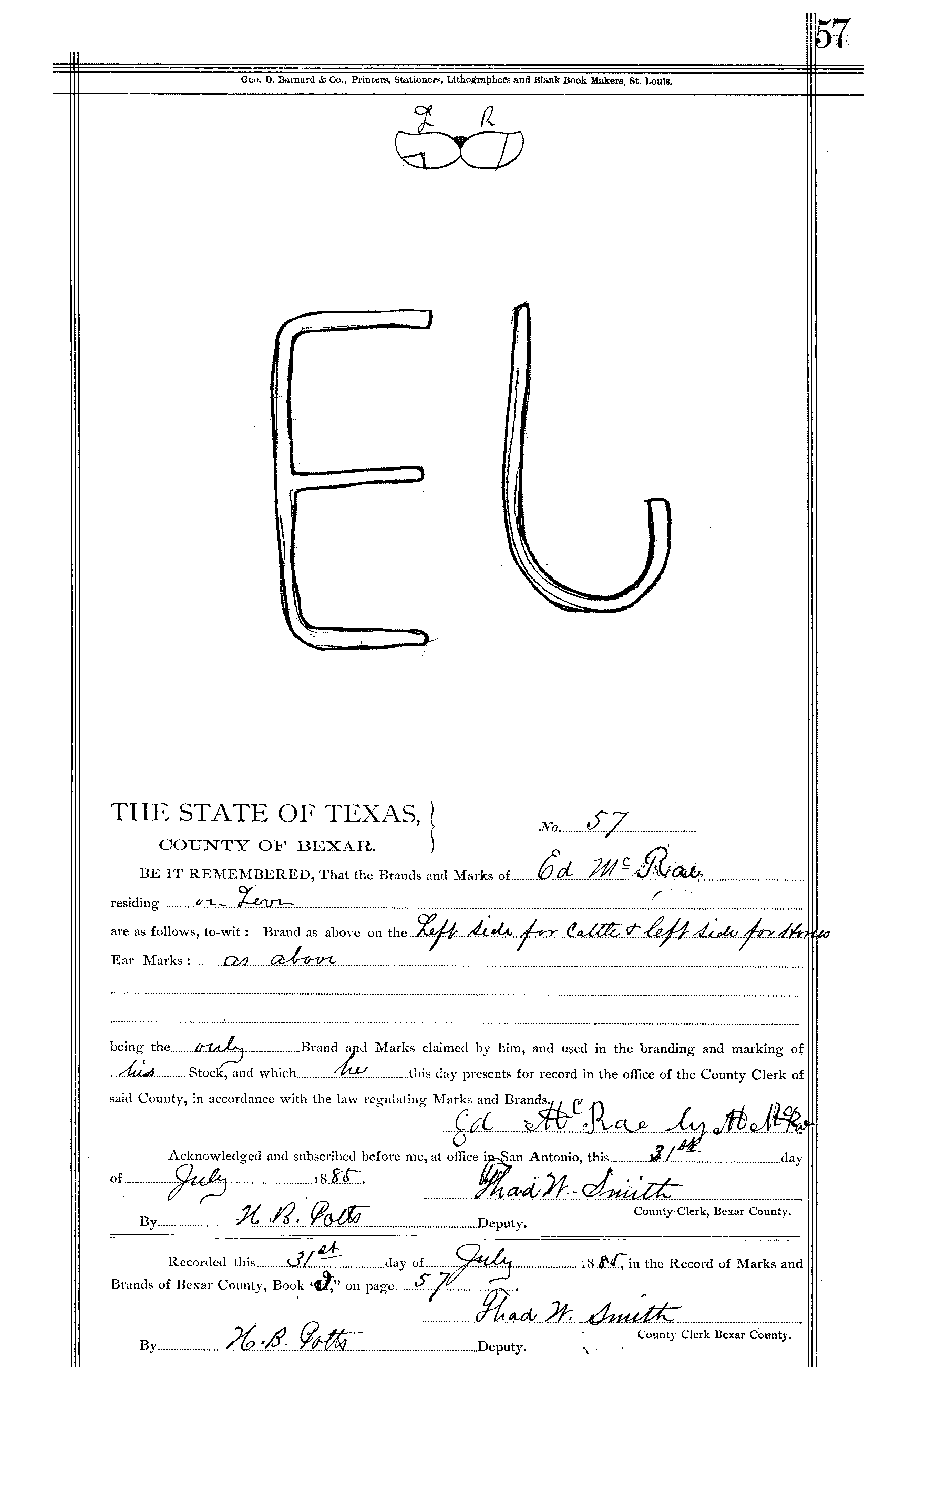 57
Geo. D. Barnard & Co., Printers, Stationers, Lithographers and Blank Book Makers, St. Louis.
L R
E
THE STATE OF TEXAS,
COUNTY OF BEXAR.
No. 57
BE IT REMEMBERED, That the Brands and Marks of Ed McRae
residing on Leon
are as follows, to-wit: Brand as above on the Left side for Cattle & left side for Horses
Ear Marks: as above
being the only Brand and Marks claimed by him, and used in the branding and marking of
his Stock, and which he this day presents for record in the office of the County Clerk of
said County, in accordance with the law regulating Marks and Brands.
Ed McRae by
Acknowledged and subscribed before me, at office in San Antonio, this 31st day
of July 1885.
Thad W. Smith
County Clerk, Bexar County.
By H. B. Potts Deputy.
Recorded this 31st day of July 1885, in the Record of Marks and
Brands of Bexar County, Book " ," on page 57
Thad W. Smith
County Clerk Bexar County.
By H. B. Potts Deputy.